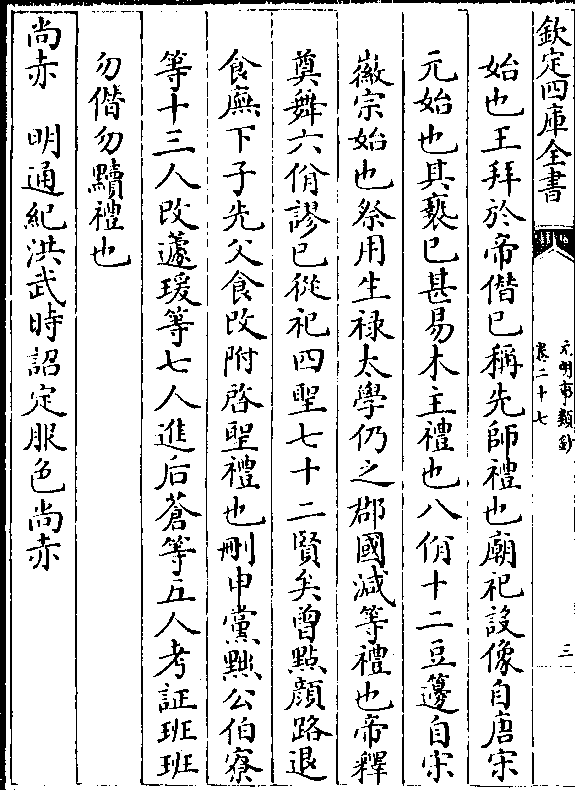 欽定四庫全書
元明事類鈔
卷二十七
三
始也王拜於帝僭巳稱先師禮也廟祀設像自唐宋
元始也其褻巳甚易木主禮也八佾十二豆籩自宋
徽宗始也祭用生祿太學仍之郡國減等禮也帝釋
奠舞六佾謬巳從祀四聖七十二賢矣曾點顔路退
食廡下子先父食改附啓聖禮也刪申黨黜公伯寮
等十三人改蘧瑗等七人進后蒼等五人考証班班
勿僭勿黷禮也
尚赤 明通紀洪武時詔定服色尚赤